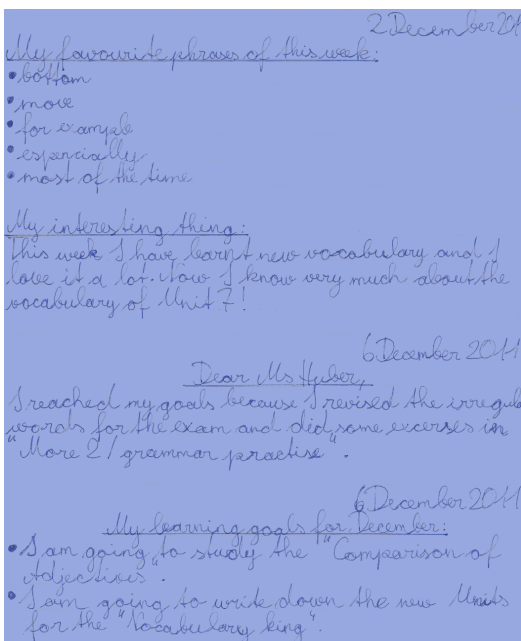 2 December 201
My favourite phrases of this week:
• bottom
• move
• for example
• espercially
• most of the time
My interesting thing:
This week I have learnt new vocabulary and I
love it a lot. Now I know very much about the
vocabulary of Unit 7!
6 December 2011
Dear Ms Huber,
I reached my goals because I revised the irregula
words for the exam and did some excerses in
"More 2 / grammar practise".
6 December 2011
My learning goals for December:
• I am going to study the "Comparison of
Adjectives".
• I am going to write down the new Units
for the "Vocabulary king".